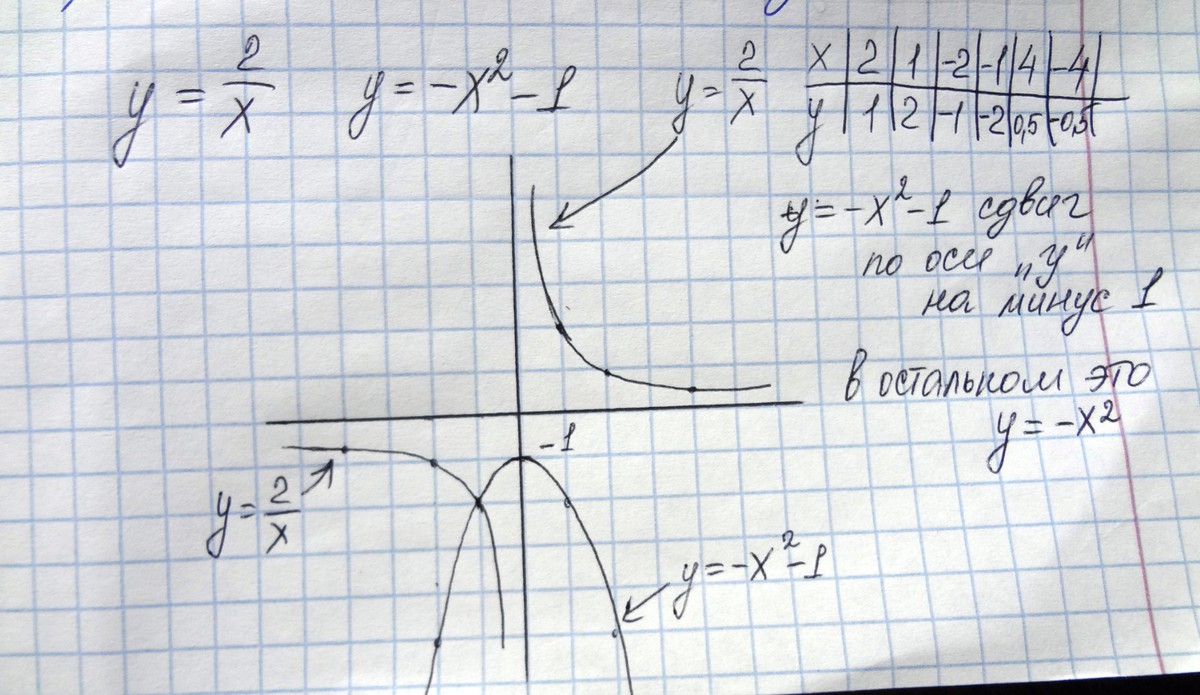 y = 2/x y = -x² - 1 y = 2/x
x | 2 | 1 | -2 | -1 | 4 | -4 |
y | 1 | 2 | -1 | -2 | 0,5 | -0,5 |
y = -x² - 1 сдвиг
по оси „y"
на минус 1
в остальном это
y = -x²
-1
y = 2/x
y = -x² - 1